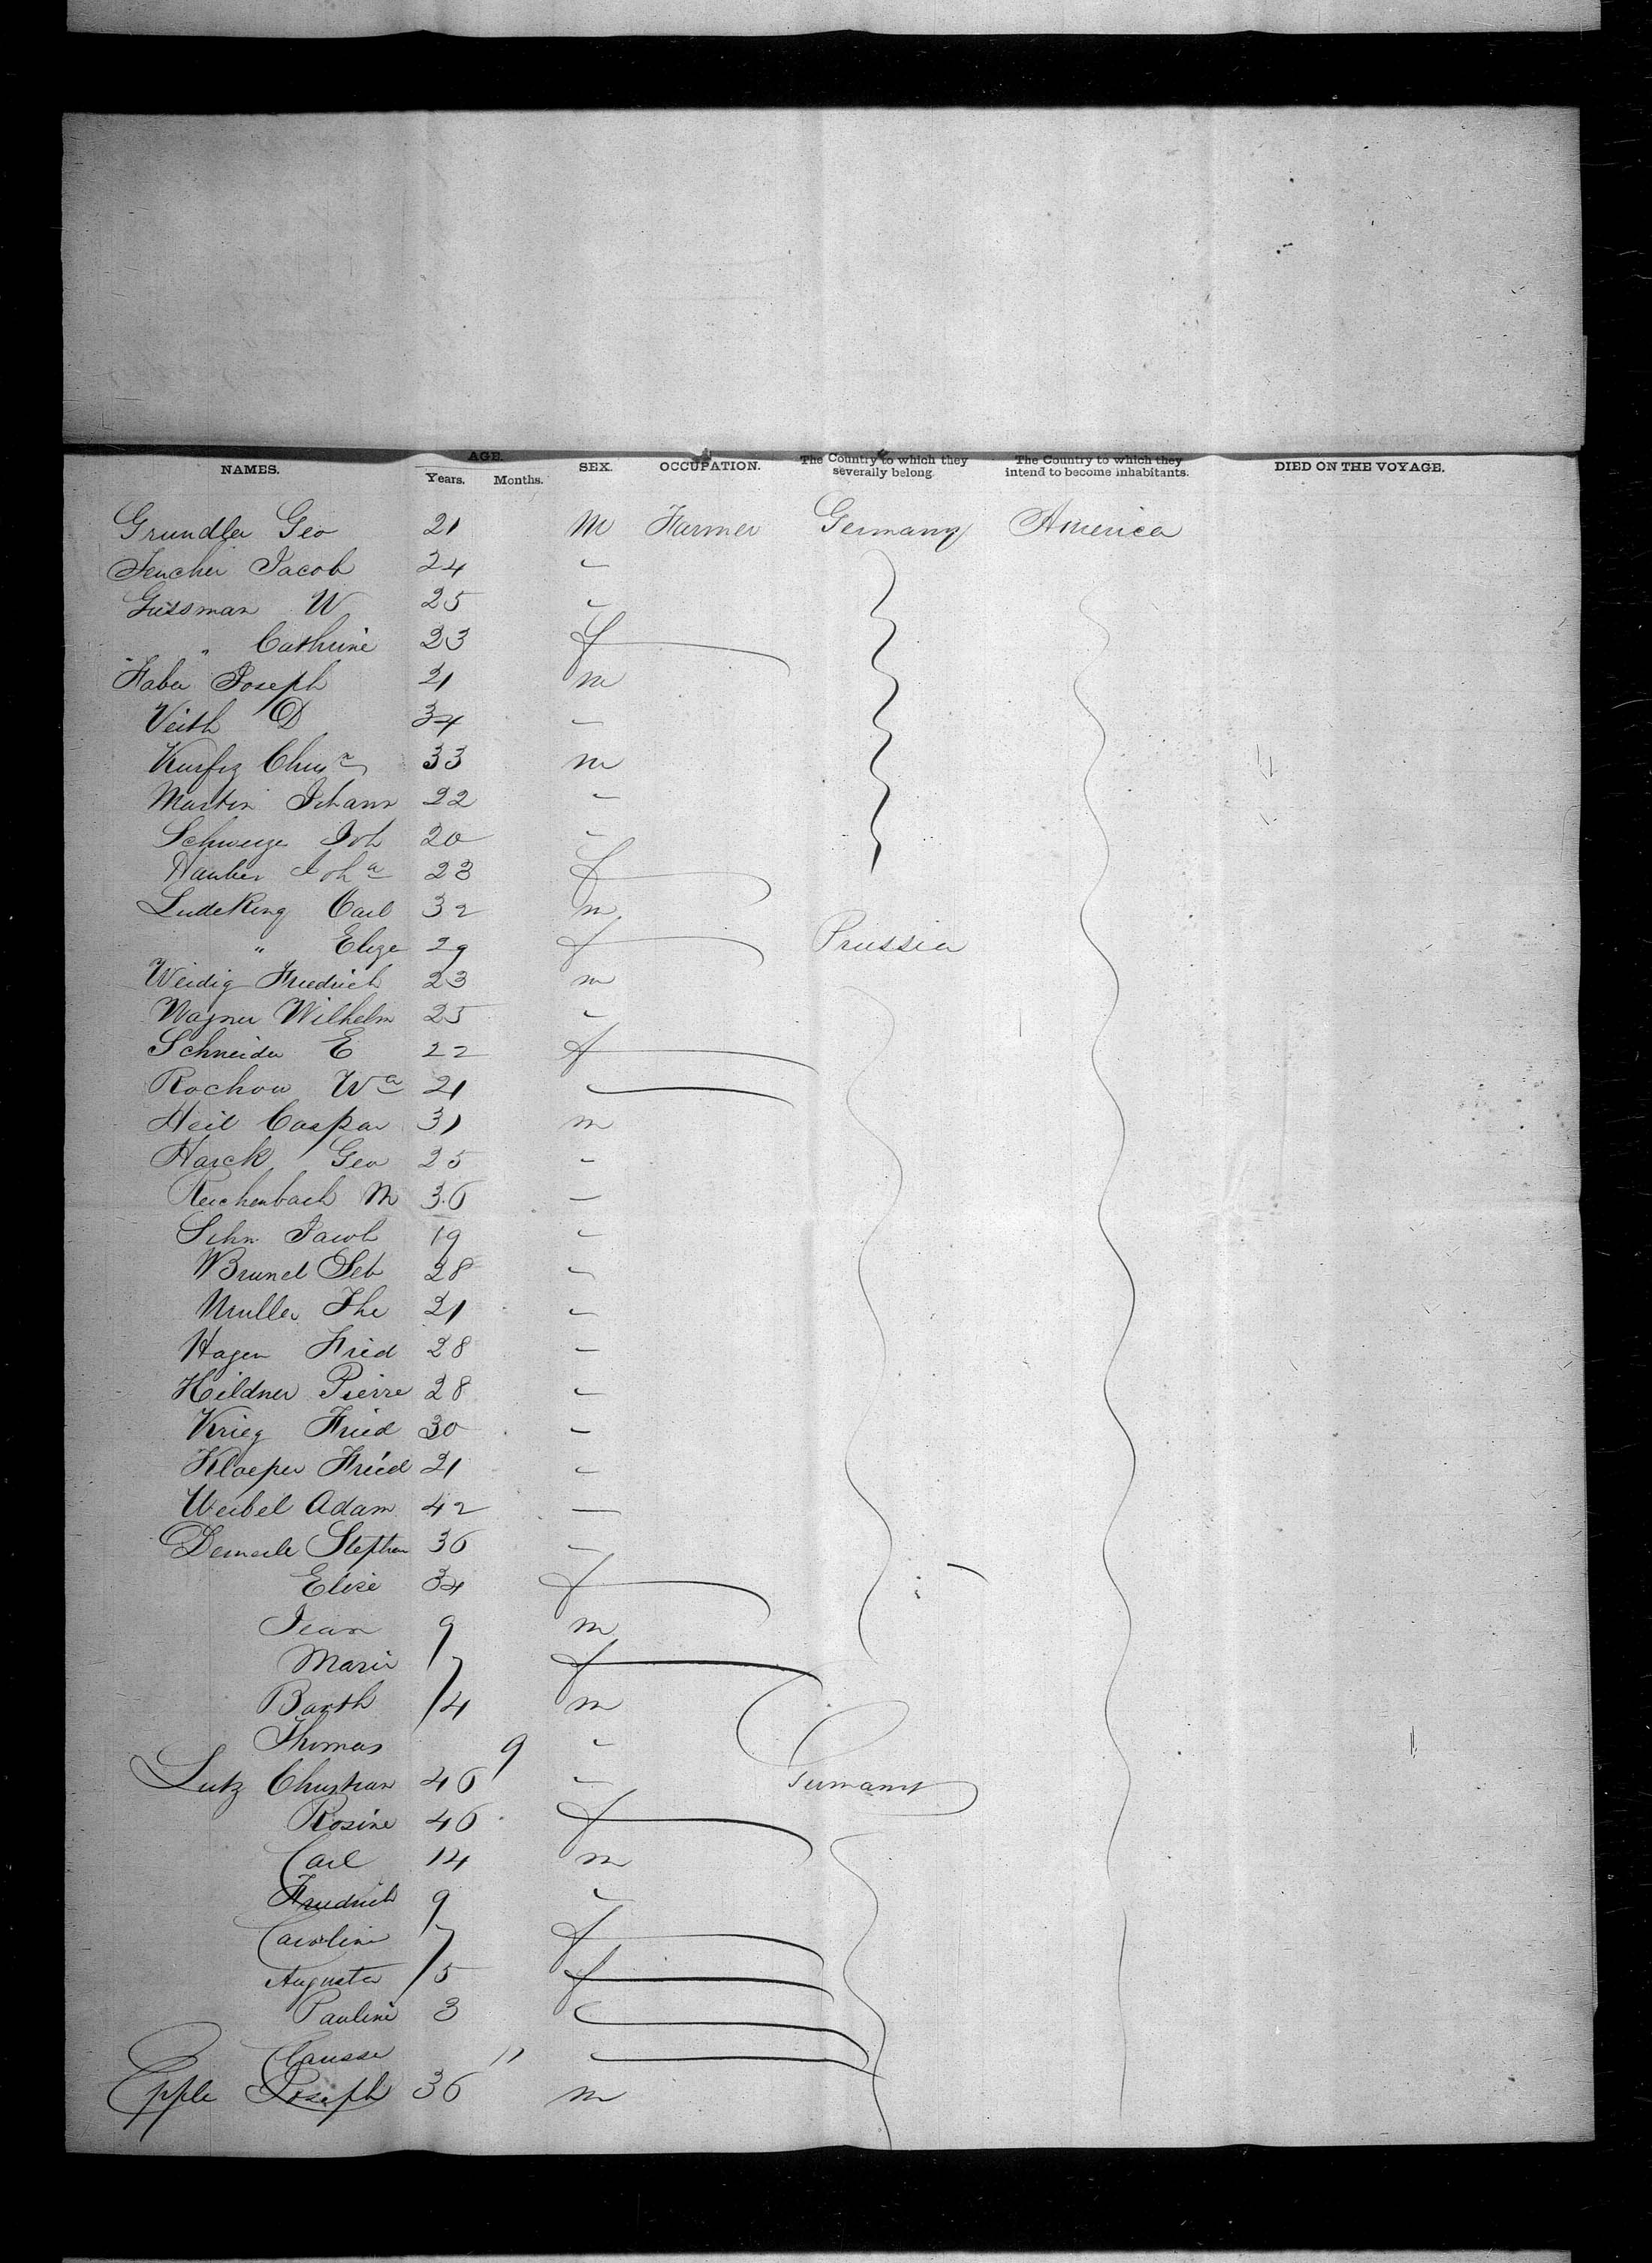 NAMES. AGE. Years. Months. SEX. OCCUPATION. The Country to which they severally belong. The Country to which they intend to become inhabitants. DIED ON THE VOYAGE.
Grundler Geo 21 M Farmer Germany America
Jacob 24 "
Gussman W 25 "
" Cathrine 23 f
Faber Joseph 21 m
Veith D 34 "
Kurfiz Chrisn 33 m
Martin Johann 22 "
Schweize Joh 20 "
Hauber Joha 23 f
Ludeking Carl 32 m
" Elize 29 f Prussia
Weidig Friedrich 23 m
Wagner Wilhelm 25 "
Schneider E 22 f
Rochow Wa 21 "
Heil Caspar 31 m
Harck Geo 25 "
Reichenbach M 36 "
Sehn Jacob 19 "
Brunel Seb 28 "
Muller The 21 "
Hagen Fried 28 "
Hildner Pierre 28 "
Krieg Fried 30 "
Kloeper Fried 21 "
Weibel Adam 42 "
Demerle Stephan 36 "
Elise 34 f
Jean 9 m
Marie 7 f
Barth 4 m
Thomas 9 "
Lutz Christian 46 " Germany
Rosine 46 f
Carl 14 m
Friedrich 9 "
Caroline 7 f
Auguste 5 f
Pauline 3 "
11 "
Epple Joseph 36 m